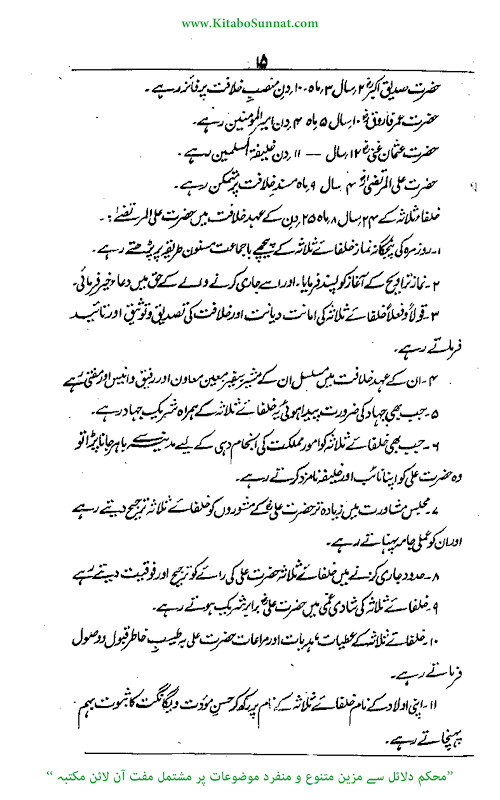 www.KitaboSunnat.com
۱۵
حضرت صدیق اکبرؓ ۲ سال ۳ ماہ ۱۰ دن منصبِ خلافت پر فائز رہے۔
حضرت عمر فاروقؓ ۱۰ سال ۵ ماہ ۴ دن امیر المؤمنین رہے۔
حضرت عثمان غنیؓ ۱۲ سال — ۱۱ دن خلیفۃ المسلمین رہے۔
حضرت علی المرتضیٰؓ ۴ سال ۹ ماہ مسندِ خلافت پر متمکن رہے۔
خلفاء ثلاثہ کے ۲۴ سال ۸ ماہ ۲۵ دن کے عہد خلافت میں حضرت علی المرتضےٰؓ :۔
۱۔ روزمرہ کی پنجگانہ نماز خلفائے ثلاثہ کے پیچھے باجماعت مسنون طریقہ پر پڑھتے رہے۔
۲۔ نماز تراویح کے آغاز کو پسند فرمایا۔ اور اسے جاری کرنے والے کے حق میں دعا خیر فرمائی۔
۳۔ قولاً و فعلاً خلفائے ثلاثہ کی امانت دیانت اور خلافت کی تصدیق و توثیق اور تائید
فرماتے رہے۔
۴۔ ان کے عہد خلافت میں مسلسل ان کے مشیر سفیر معین معاون اور رفیق و انیس اور مفتی رہے
۵۔ جب بھی جہاد کی ضرورت پیدا ہوئی یہ خلفائے ثلاثہ کے ہمراہ شریک جہاد رہے۔
۶۔ جب بھی خلفائے ثلاثہ کو امور مملکت کی انجام دہی کے لیے مدینہ سے باہر جانا پڑا تو
وہ حضرت علی کو اپنا نائب اور خلیفہ نامزد کرتے رہے۔
۷۔ مجلس مشاورت میں زیادہ تر حضرت علیؓ کے مشوروں کو خلفائے ثلاثہ ترجیح دیتے رہے
اور ان کو عملی جامہ پہناتے رہے۔
۸۔ حدود جاری کرنے میں خلفائے ثلاثہ حضرت علی کی رائے کو ترجیح اور فوقیت دیتے رہے
۹۔ خلفائے ثلاثہ کی شادی غمی میں حضرت علیؓ برابر شریک ہوتے رہے۔
۱۰۔ خلفائے ثلاثہ کے عطیات، ہدیات اور مراعات حضرت علی بہ طیبِ خاطر قبول و وصول
فرماتے رہے۔
۱۱۔ اپنی اولاد کے نام خلفائے ثلاثہ کے نام پر رکھ کر حسن مودت و یگانگت کا ثبوت بہم
پہنچاتے رہے۔
"محکم دلائل سے مزین متنوع و منفرد موضوعات پر مشتمل مفت آن لائن مکتبہ"